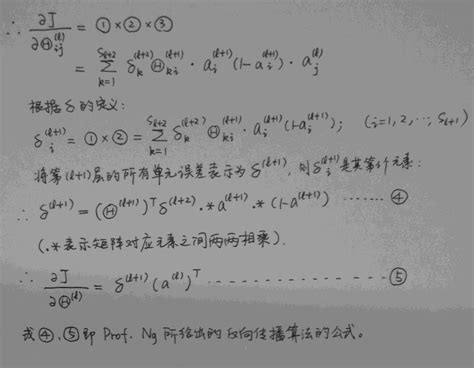 ∴ ∂J/∂Θ_{ij}^{(l)} = ① × ② × ③
= Σ_{k=1}^{S_{l+2}} δ_k^{(l+2)} Θ_{ki}^{(l+1)} · a_i^{(l+1)} (1-a_i^{(l+1)}) · a_j^{(l)}
根据δ的定义:
δ_i^{(l+1)} = ① × ② = Σ_{k=1}^{S_{l+2}} δ_k^{(l+2)} Θ_{ki}^{(l+1)} · a_i^{(l+1)} (1-a_i^{(l+1)}); (i=1, 2, ···, S_{l+1})
将第(l+1)层的所有单元误差表示为 δ^{(l+1)}, 则 δ_i^{(l+1)} 是其第i个元素:
∴ δ^{(l+1)} = (Θ^{(l+1)})^T δ^{(l+2)} .* a^{(l+1)} .* (1-a^{(l+1)}) ······ ④
(.* 表示矩阵对应元素之间两两相乘).
∴ ∂J/∂Θ^{(l)} = δ^{(l+1)} (a^{(l)})^T ·················· ⑤
④、⑤即 Prof. Ng 所给出的反向传播算法的公式。